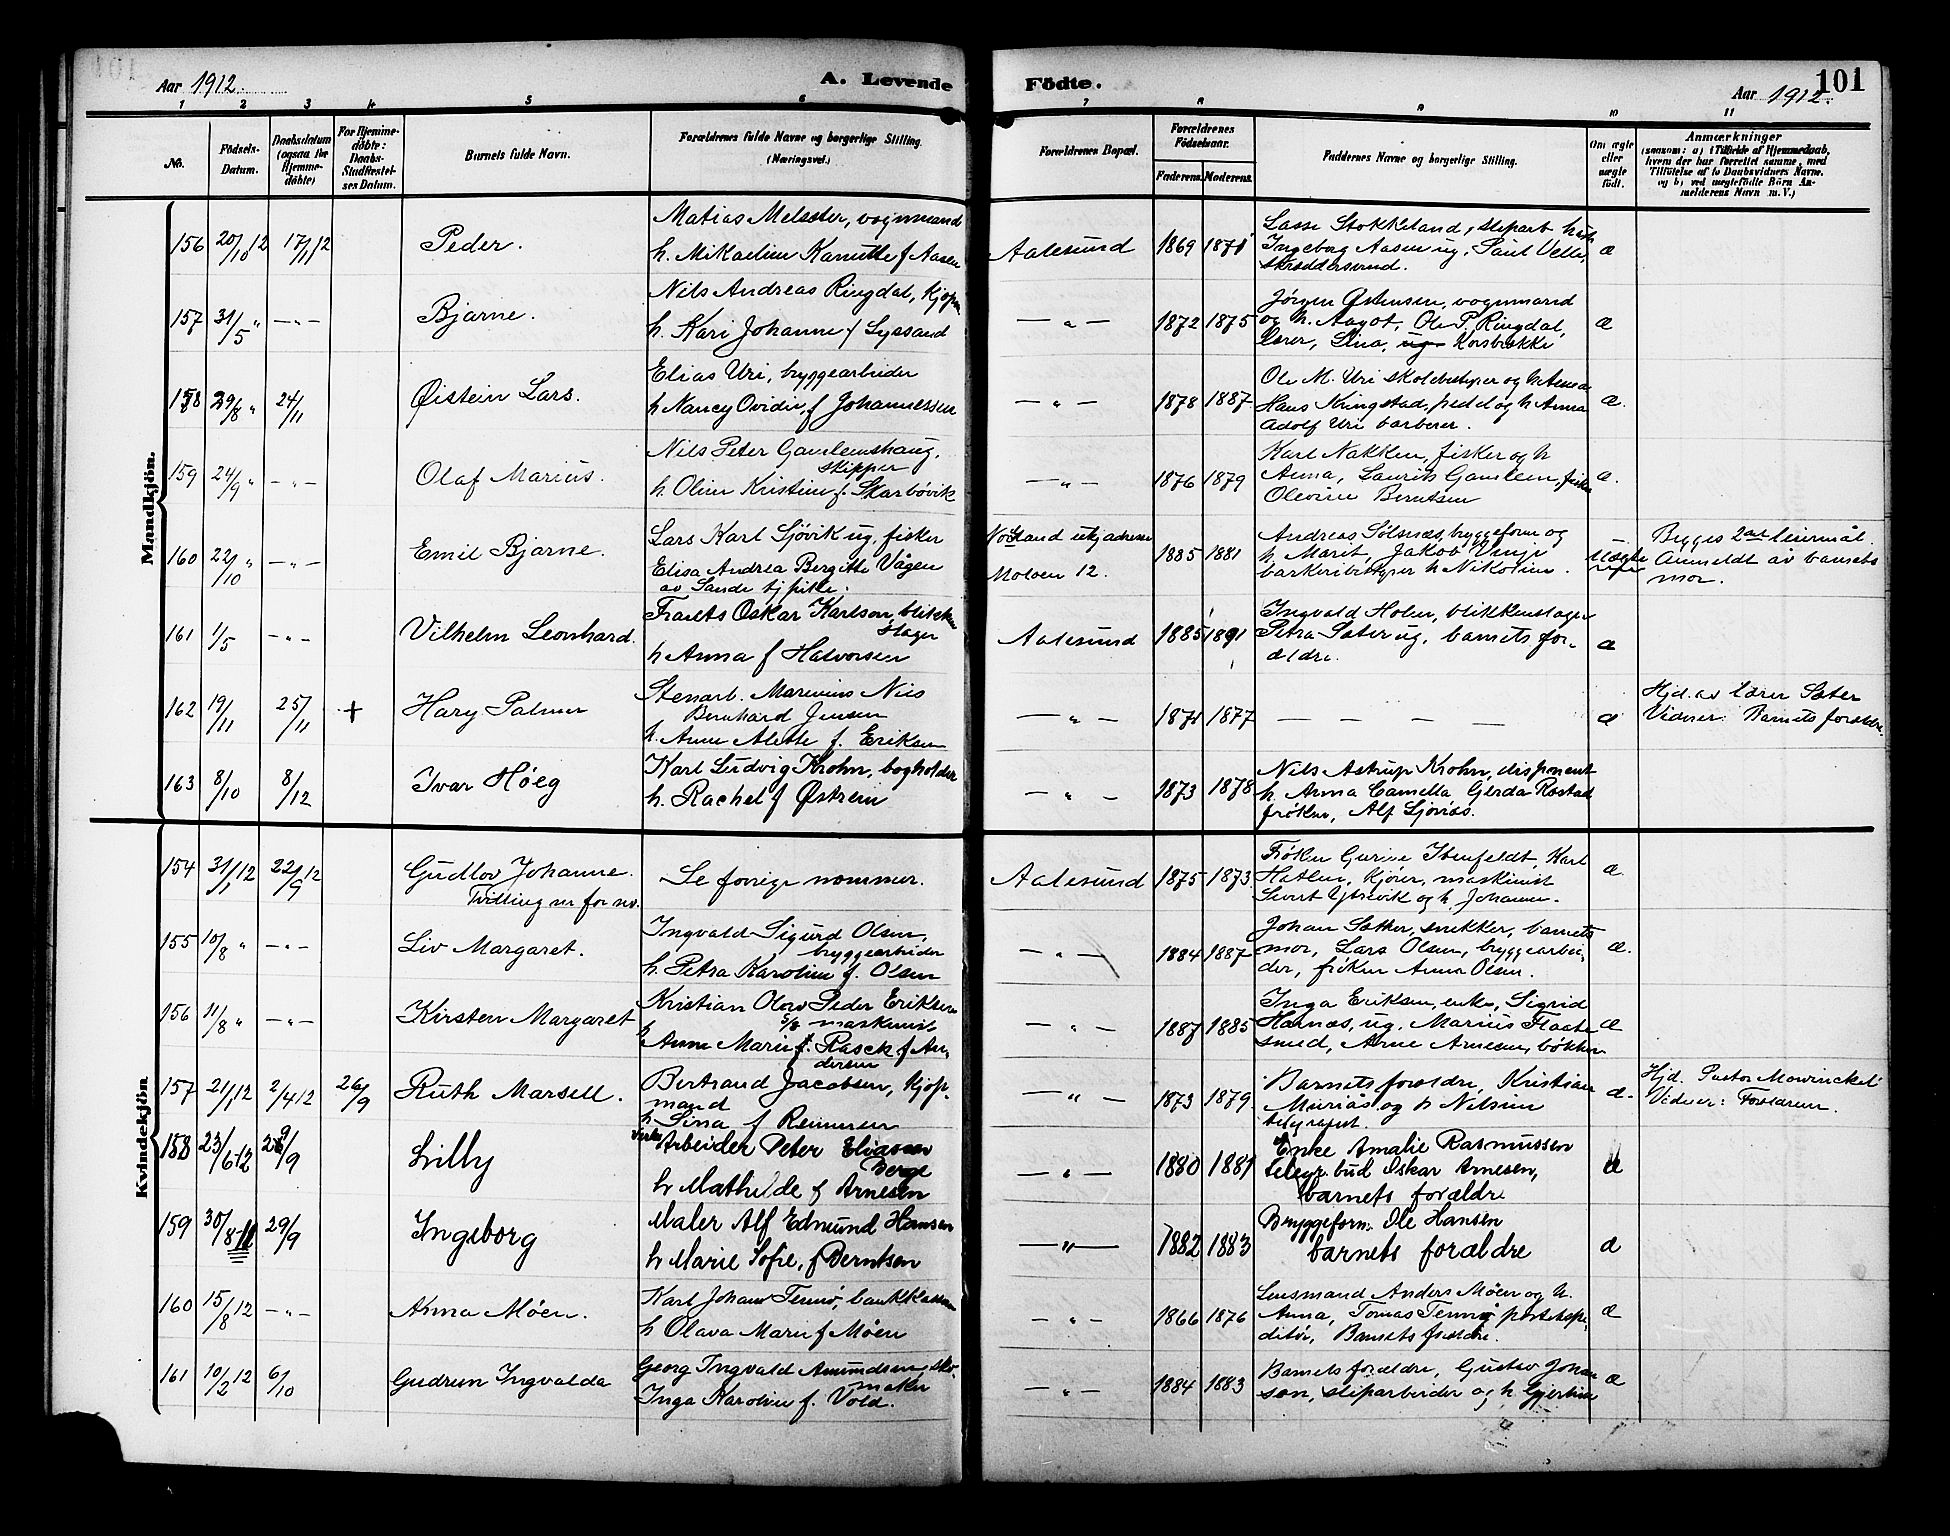 101
Aar 1912. A. Levende Födte. Aar 1912.
1 2 3 4 5 6 7 8 9 10 11
No.
Födsels-Datum.
Daabsdatum (ogsaa for Hjemme-döbte)
For Hjemme-döbte: Daabs-Stadfæstel-ses Datum.
Barnets fulde Navn.
Forældrenes fulde Navne og borgerlige Stilling. (Næringsvei.)
Forældrenes Bopæl.
Forældrenes Födselsaar.
Faderens. Moderens.
Faddernes Navne og borgerlige Stilling.
Om ægte eller uægte födt.
Anmærkninger
(saasom: a) i Tilfælde af Hjemmedaab,
hvem der har forrettet samme, med
Tilföielse af to Daabsvidners Navne,
og b) ved uægtefödte Börn An-
melderens Navn m. V.)
Mandkjön.
156 20/10 12 17/11 12 Peder. Matias Melseter, vognmand
h. Mikaeline Kanutte f Aasen
Aalesund 1869 1871 Lasse Stokkeland, sliparb
Ingeborg Aasen ug, Paul
skræddersvend. æ
157 31/5 " — " — Bjarne. Nils Andreas Ringdal, Kjøpm
h. Kari Johanne f Lyssand
— " — 1872 1875 Jørgen Østensen, vognmand
og h. Aagot, Ole P. Ringdal,
lærer, Lina, Korsbrekke æ
158 29/8 " 24/11 Øistein Lars. Elias Uri, bryggearbeider
h Nancy Ovidie, f Johannessen
— " — 1878 1887 Ole M. Uri skolebestyrer og h Anna
Hans Kringstad, og h Anna
Adolf Uri barberer. æ.
159 24/9 " — " — Olaf Marius. Nils Peter Gamlemshaug,
skipper
h. Oline Kristine f. Skarbövik
— " — 1876 1879 Karl Nakken, fisker og h
Anna, Laurits Gamlem fisker
Olevine Berntsen æ.
160 22/10 " — " — Emil Bjarne. Lars Karl Sjövik ug. fisker
Elisa Andrea Bergitte Vågen
av Sande tj pike.
Moloen 12. 1885 1881 Andreas Sølsnæs, bryggeform og
h Marit, Jakob Vinje
h Nikoline. Uægte
Begges 2det leiermål.
Anmeldt av barnets
mor.
161 1/5 — " — Vilhelm Leonhard. Frants Oskar Karlson, blikken
slager
h Anna f Halvorsen
Aalesund 1885 1891 Ingvald Holen, blikkenslager
Petra Sæter ug, barnets for-
ældre. æ
162 19/11 25/11 + Hary Palmer Stenarb. Marinius Nils
Bernhard Jensen
h. Anne Alette f. Eriksen
— " — 1871 1877 — — — — æ
Hjd. av lærer Sæter
Vidner: Barnets forældre
163 8/10 8/12 Ivar Höeg Karl Ludvig Krohn, bogholder
h. Rachel f Østrem
— " — 1873 1878 Nils Astrup Krohn, disponent
h Anna Camilla Gerda Rostad
frøken, Alf Sjonæs.
Kvindekjön
154 31/1 12 22/9 12 Gudlov Johanne.
Tvilling
Se forrige nommer.
Aalesund 1875 1873 Frøken Gurine Ibenfeldt, Karl
Hatlen, Kjører, maskinist
Sivert Ytrevik og h. Johanne. æ
155 10/8 " — " — Liv Margaret. Ingvald Sigurd Olsen,
bryggearbeider
h. Petra Karoline f. Olsen
— " — 1884 1887 Johan Sæther, snekker, barnets
mor, Lars Olsen, bryggearbei-
der, frøken Anna Olsen. æ.
156 11/8 " — " — Kirsten Margaret Kristian Olav Peder Eriksen
maskinist
h Anne Marie f. Rasck f An-
dersen
— " — 1887 1885 Inga Eriksen, enke, Sigrid
Harnæs, ug. Marius Flaate
smed, Arne Arnesen, bøkker æ
157 21/1 12 2/4 12 26/9 Ruth Marsell. Bertrand Jacobsen, Kjøp-
mand
h Lina f Reinnen
— " — 1873 1879. Barnets forældre, Kristian
Muriås og h Nilsine
telegrafist. æ.
Hjd. Pastor Mowinckel
Vidner: Forældrene.
158 23/6 12 29/9 Lilly Arbeider Peter Eliassen
Berge
h Mathilde f Arnesen
— " — 1880 1881 Enke Amalie Rasmussen
telegr. bud Oskar Arnesen,
barnets forældre æ
159 30/8 11 29/9 Ingeborg Maler Alf Edmund Hansen
h Marie Sofie, f Berntsen
— " — 1882 1883 Bryggeform. Ole Hansen
barnets forældre æ
160 15/8 12 — " — Anna Möen. Karl Johan Tennö, bankkasserer
h Olava Marie f Möen
— " — 1866 1876 Lensmand Anders Möen og h.
Anna, Tomas Tennö postekspe-
ditör, Barnets forældre. æ
161 10/2 12 6/10 Gudrun Ingvalda Georg Ingvald Amundsen, sko-
maker
Inga Karoline f. Vold.
— " — 1884 1883 Barnets forældre, Gustav Johan
son, sliparbeider og h Gjertine æ